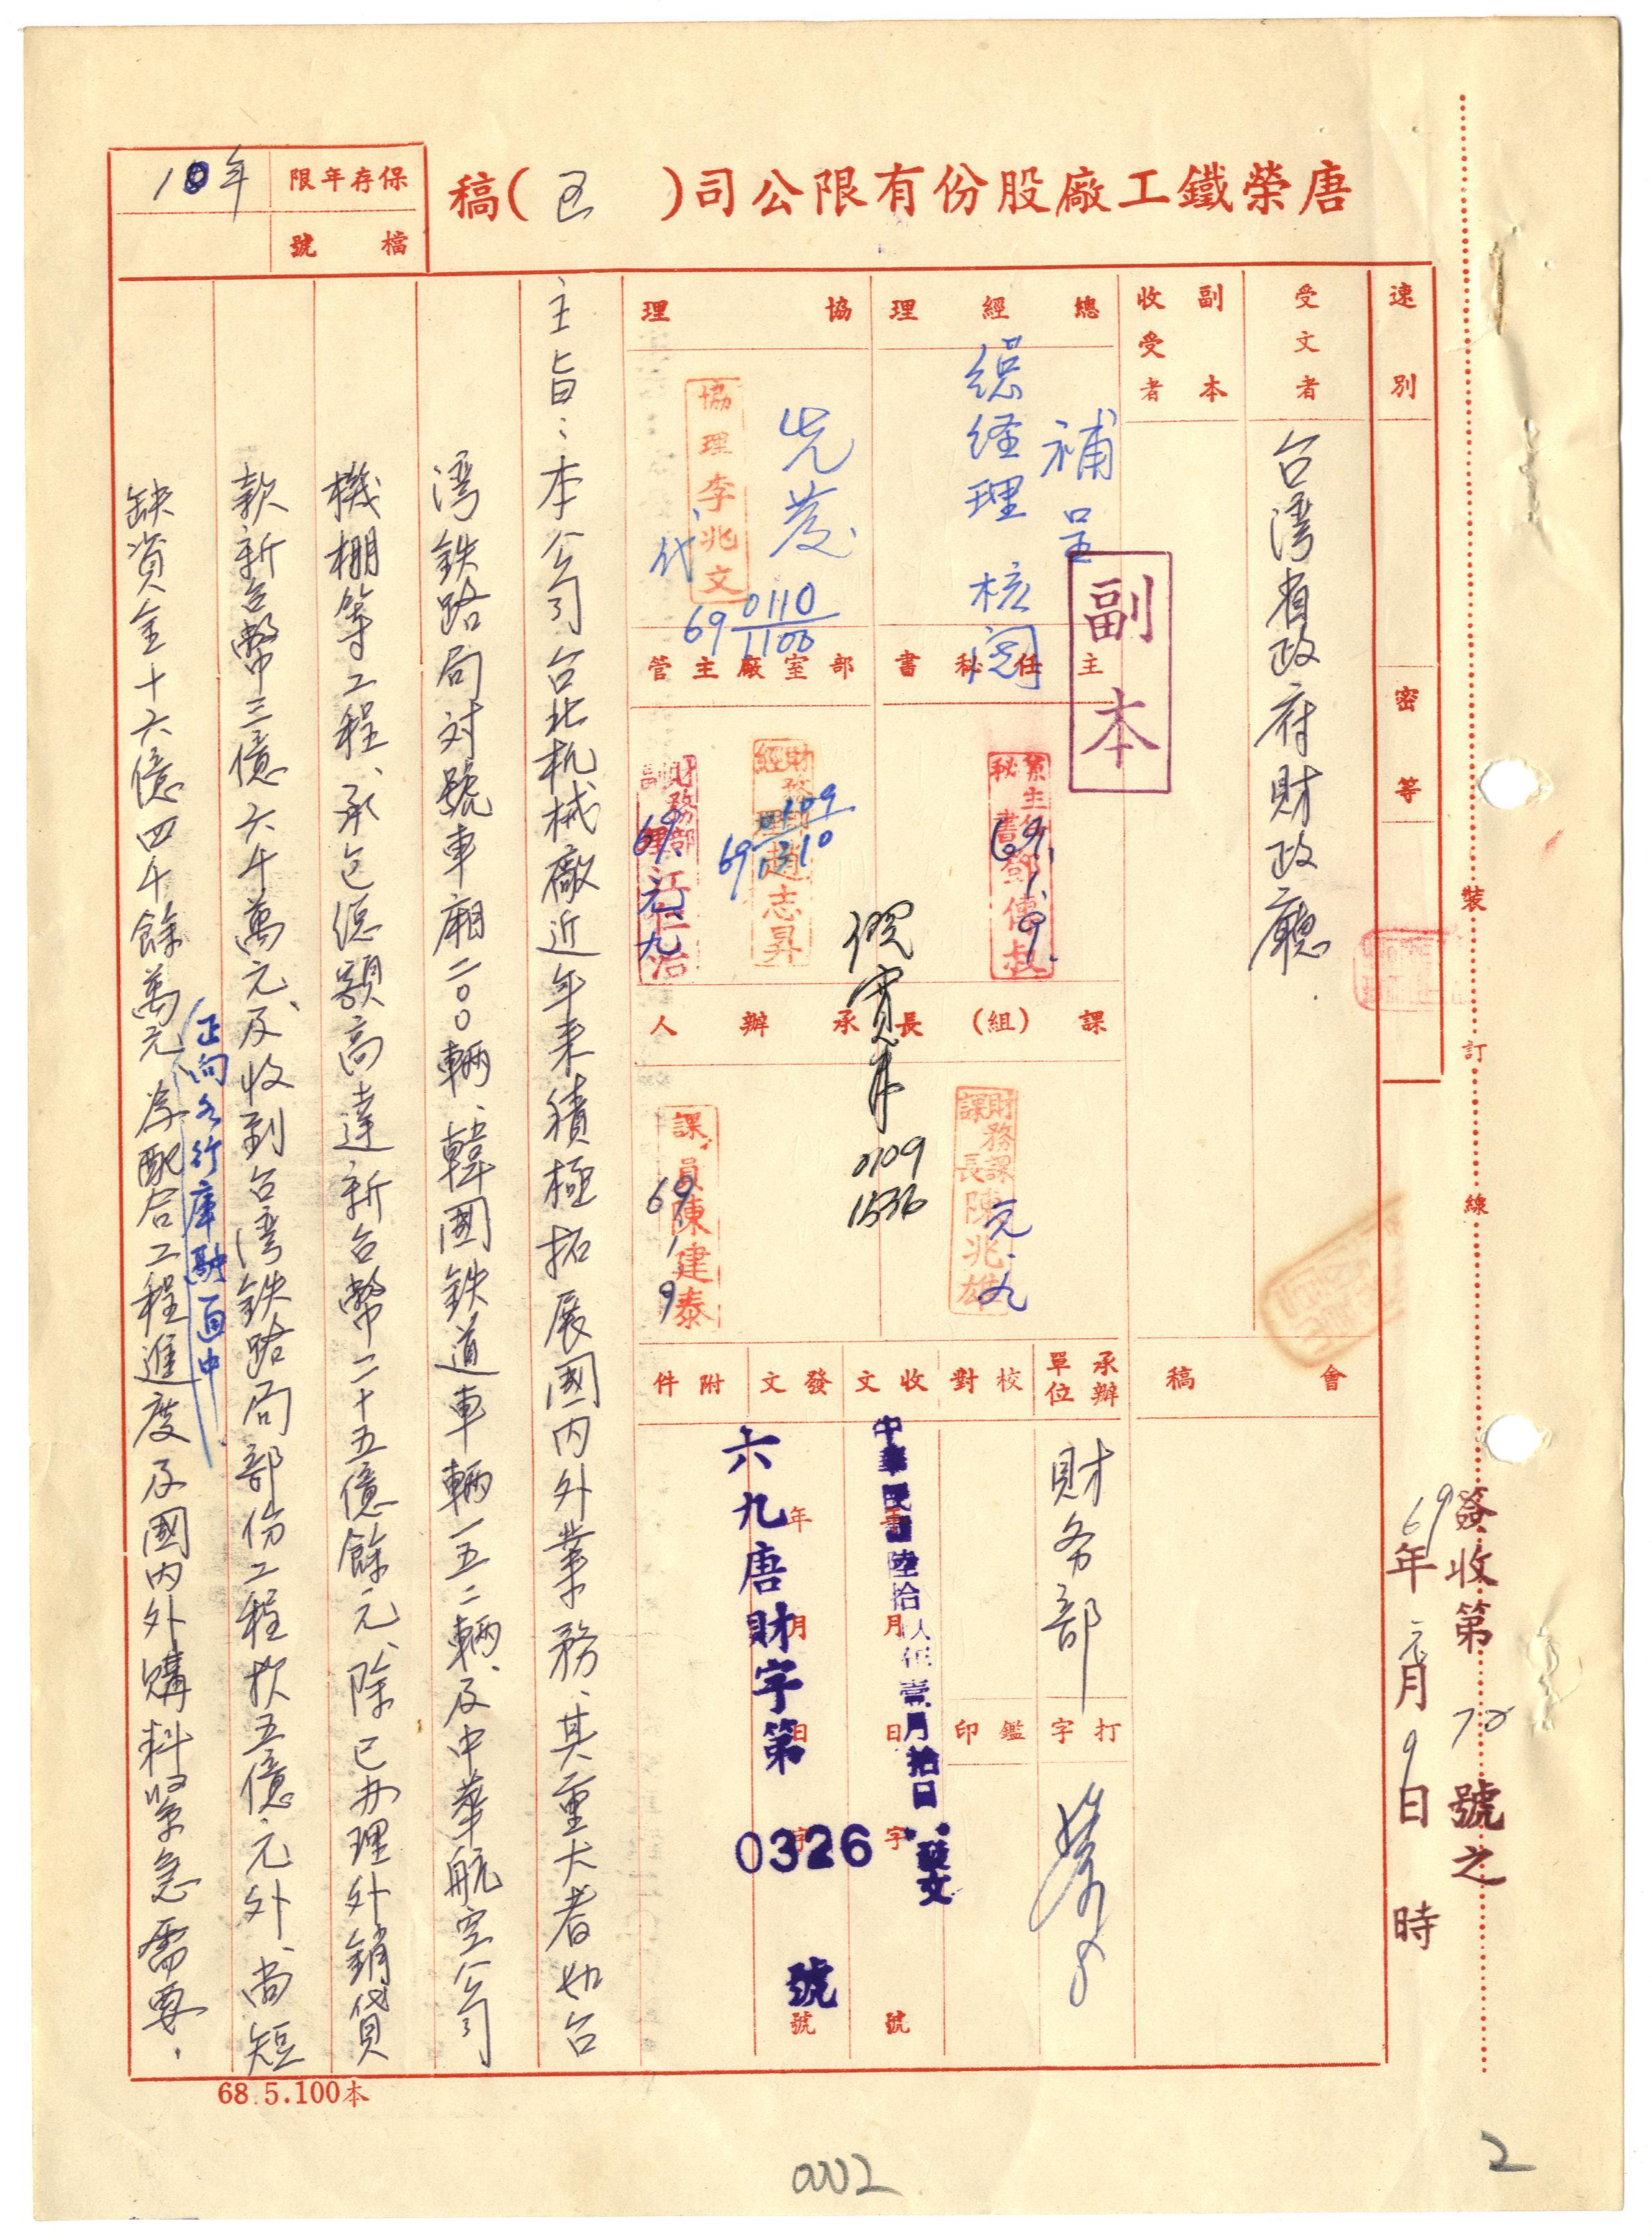 唐榮鐵工廠股份有限公司（函）稿
保存年限
10年
檔號
速別
密等
受文者
台湾省政府財政廳.
副本收受者
副本
總經理
補呈
總経理核閱
協理
先發
協理李兆文
代
69 0110 1100
主任秘書
69.1.9.
部室廠主管
財務部經理趙志昇
69 0109 1310
財務部副理
69.元.九
課（組）長
財務課課長陳兆雄
元.九
承辦人
課員陳建泰
69.1.9
0109
1536
會稿
承辦單位
財务部
打字
校對
鑑印
收文
年月日字號
中華民國陸拾玖年壹月拾日發文
發文
年月日字號
六九唐財字第0326號
附件
主旨：本公司台北机械廠近年来積極拓展國内外業務、其重大者如台
湾鉄路局対號車廂二〇〇輛、韓國鉄道車輛一五二輛、及中華航空公司
機棚等工程、承包總額高達新台幣二十五億餘元、除已办理外銷貸
款新台幣三億六千萬元、及收到台湾鉄路局部份工程款五億元外、尚短
缺資金十六億四千餘萬元
正向各行庫融通中
為配合工程進度及國内外購料緊急需要、
裝訂線
簽收第70號之
69年元月9日時
68.5.100本
0002
2